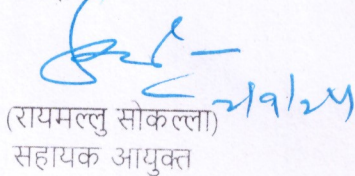 (रायमल्लु सोकल्ला)
सहायक आयुक्त